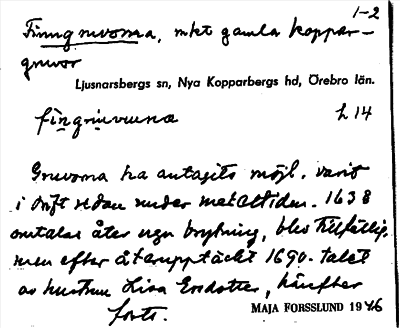 1-2
Finngruvorna, mkt gamla koppar-
gruvor
Ljusnarsbergs sn, Nya Kopparbergs hd, Örebro län.
fingruvuna L 14
Gruvorna ha antagits möjl. varit
i drift redan under medeltiden. 1638
omtalas åter ngn brytning, blev tillfällig,
men efter återupptäckt 1690-talet
av hustrun Lisa Ersdotter, härefter
forts. MAJA FORSSLUND 1946